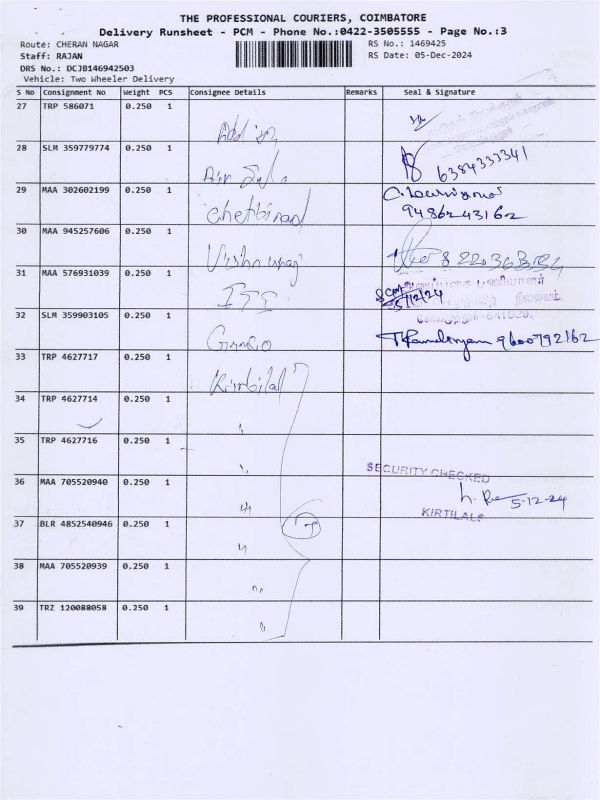 THE PROFESSIONAL COURIERS, COIMBATORE
Delivery Runsheet - PCM - Phone No.:0422-3505555 - Page No.:3
Route: CHERAN NAGAR
RS No.: 1469425
Staff: RAJAN
RS Date: 05-Dec-2024
DRS No.: DCJB146942503
Vehicle: Two Wheeler Delivery
S No Consignment No Weight PCS Consignee Details Remarks Seal & Signature
27 TRP 586071 0.250 1
28 SLM 359779774 0.250 1 6384333341
29 MAA 302602199 0.250 1 Chettinad
9486243162
30 MAA 945257606 0.250 1
31 MAA 576931039 0.250 1 ITI
5/12/24
நிலையம்
32 SLM 359903105 0.250 1 9600792162
33 TRP 4627717 0.250 1 Kirtilal
34 TRP 4627714 0.250 1 "
35 TRP 4627716 0.250 1 "
SECURITY CHECKED
36 MAA 705520940 0.250 1 "
5-12-24
KIRTILALS
37 BLR 4852540946 0.250 1 " 7
38 MAA 705520939 0.250 1 "
39 TRZ 120088058 0.250 1 "